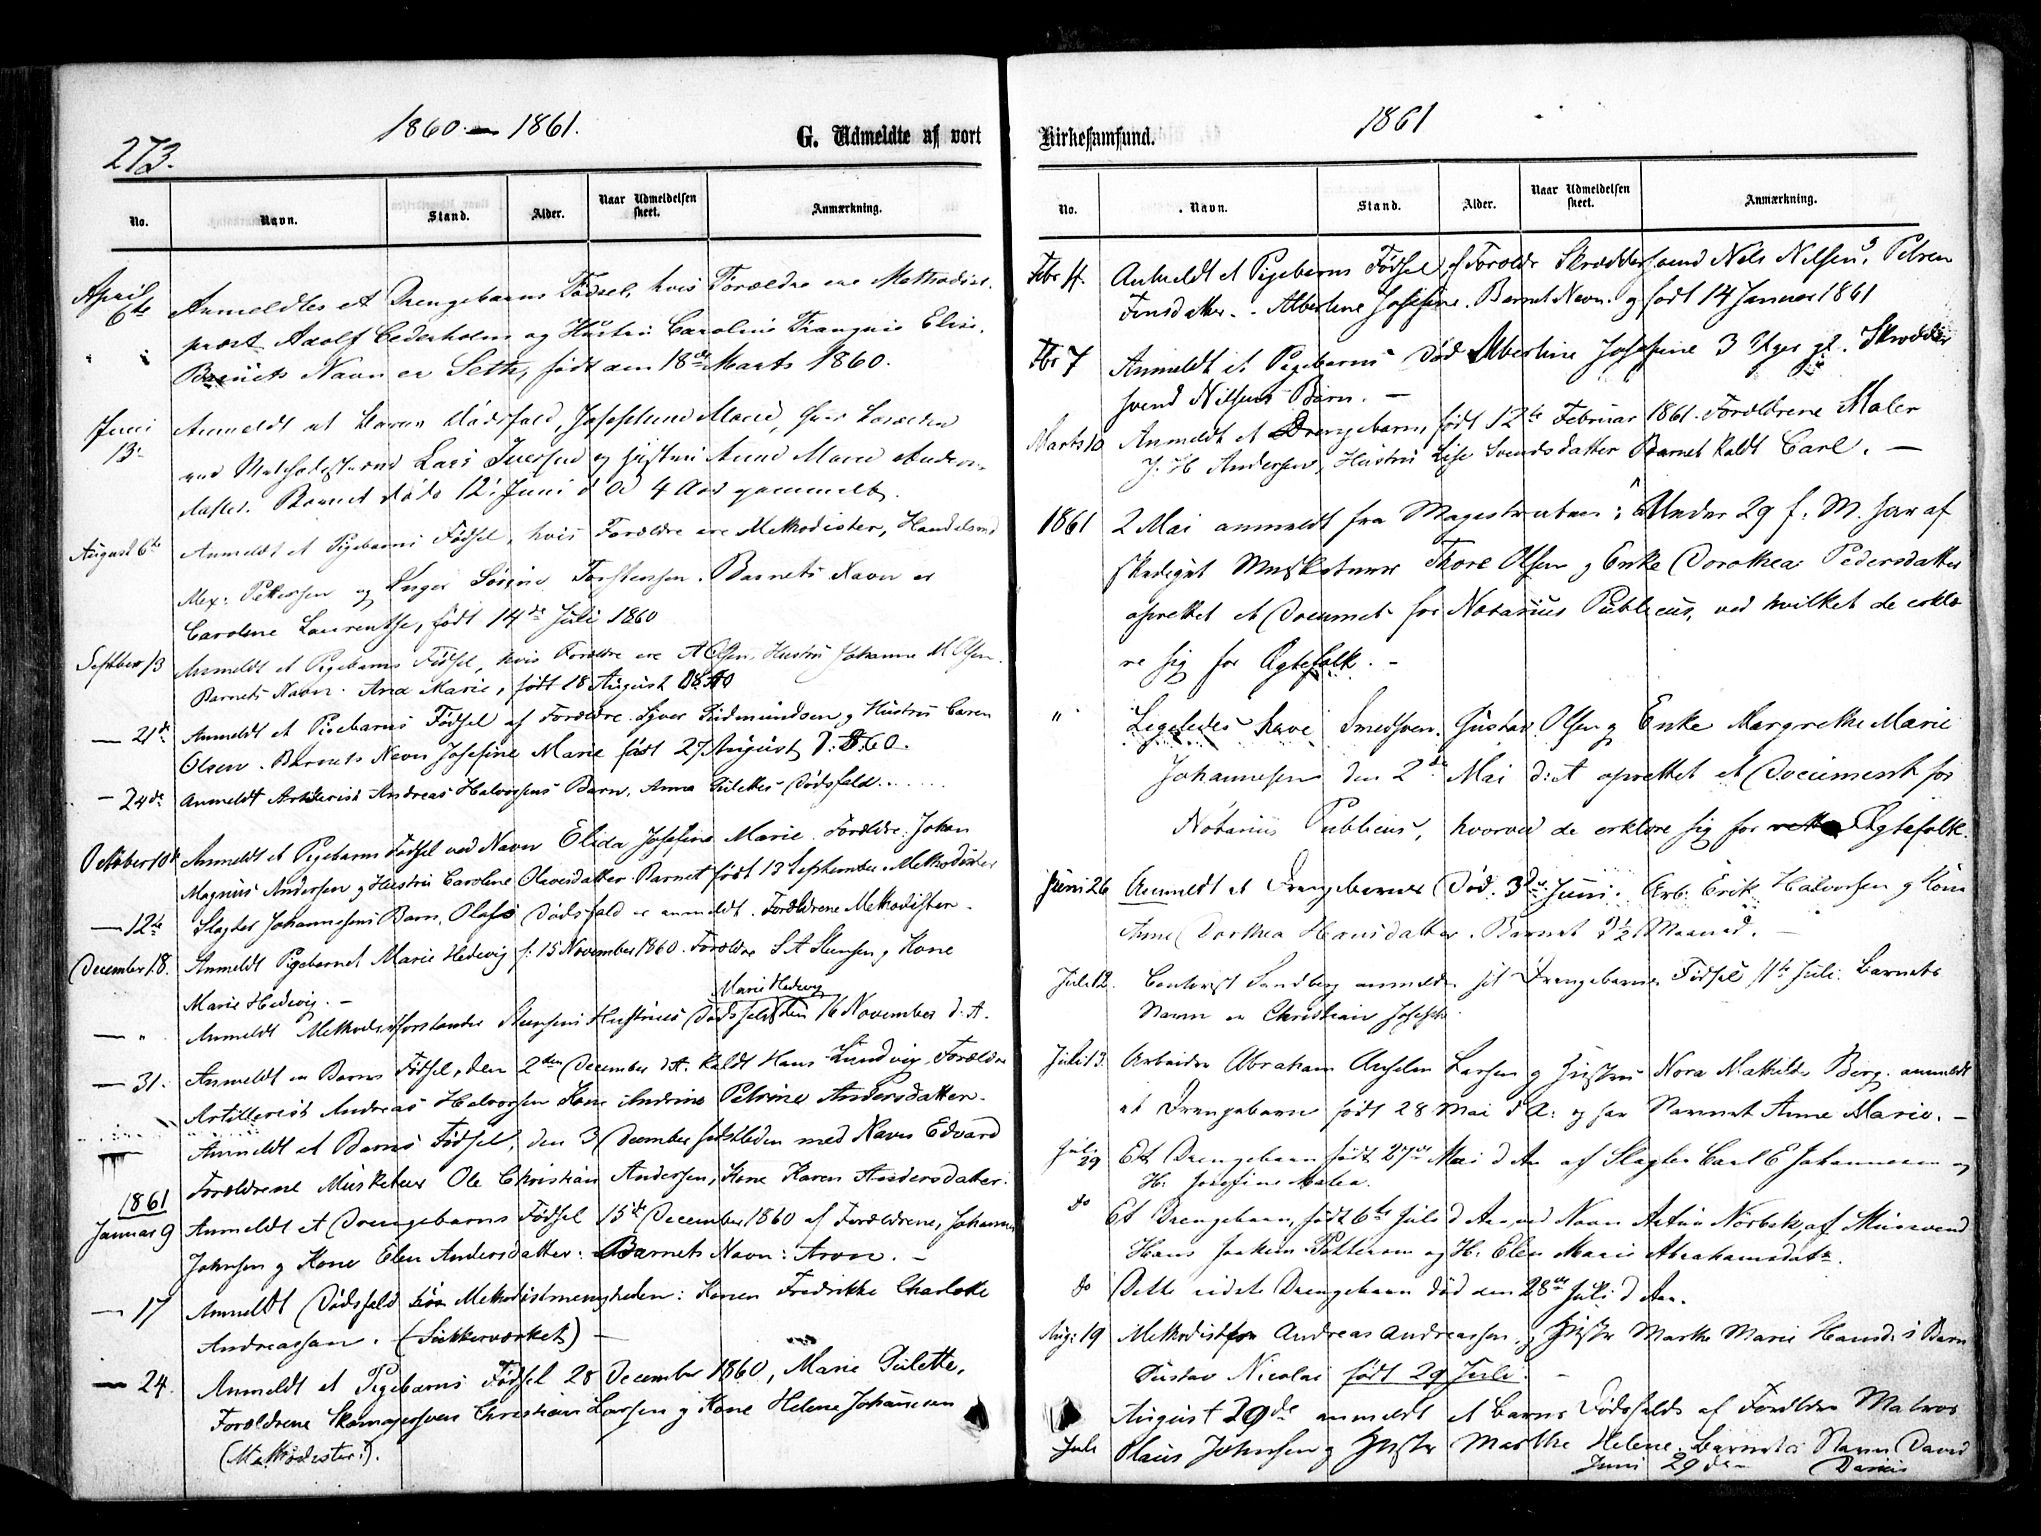 273.
1860 — 1861.
G. Udmeldte af vort
No.
Navn.
Stand.
Alder.
Naar Udmeldelsen skeet.
Anmærkning.
April 6te Anmeldtes et Drengebarns Fødsel, hvis Forældre ere Methodist-
præst Adolf Cederholm og Hustru Carolina Elise.
Barnets Navn er Seth, født den 18de Marts 1860.
Juni 13. Anmeldt et Barns Dødsfald, Josephine Marie,
Lars Iversen og Hustru Anne Marie Anders-
datter. Barnet døde 12. Juni d A 4 Aar gammelt.
August 6te Anmeldt et Pigebarns Fødsel, hvis Forældre ere Methodister, Handelsmd
Petersen og Inger Torstensen. Barnets Navn er
Caroline Laurentse, født 14de Juli 1860
Septber 13 Anmeldt et Pigebarns Fødsel, hvis Forældre ere A Olsen, Hustru Johanne M Olsen.
Barnets Navn. Ana Marie, født 18 August 1860
— 21de Anmeldt et Pigebarns Fødsel af Forældre Syver Gudmundsen og Hustru Caren
Olsen. Barnets Navn Josefine Marie født 27 August 1860.
— 24de Anmeldt Artillerist Andreas Halvorsens Barn, Anna Dødsfald.
October 10de Anmeldt et Pigebarns Fødsel ved Navn Elida Josefine Marie. Forældre: Johan
Magnus Andersen og Hustru Caroline Olavesdatter. Barnet født 13 September. Methodister
— 12te Slagter Johannesens Barn, Olafs Dødsfald er anmeldt. Forældrene Methodister.
December 18. Anmeldt Pigebarnet Marie Hedevig f. 15 November 1860. Forældre S A Stensen og Kone
Marie Hedevig. —
Marie Hedevig
— " Anmeldt Methodistforstander Stensens Hustrues Dødsfald den 16 November d. A.
— 31. Anmeldt en Barns Fødsel, den 2den December d.A. kaldt Hans Lundvig. Forældre
Artillerist Andreas Halvorsen Kone Andrine Petrine Andersdatter.
— Anmeldt et Barns Fødsel, den 3 December sidstleden med Navn Edvard
Forældrene Musketeer Ole Christian Andersen, Kone Karen Andersdatter.
1861
Januar 9 Anmeldt et Drengebarns Fødsel 15de December 1860 af Forældrene, Johannes
Johnsen og Kone Elen Andersdatter. Barnets Navn: Aron. —
— 17 Anmeldt Dødsfald Methodistmenigheden: Konen Fredrikke Charlotte
Andreassen. (Sukkerværket) —
— 24. Anmeldt et Pigebarns Fødsel 28 December 1860, Marie Gulette,
Forældrene Skomagersven Christian Larsen og Kone Helene Johannesen
(Methodister).
1861
Kirkesamfund.
No.
Navn.
Stand.
Alder.
Naar Udmeldelsen skeet.
Anmærkning.
Fbr 4. Anmeldt et Pigebarns Fødsel, af Foreldr Skræddersvend Nils Nilsen og Petren
Albertine Josefine. Barnets Navn. og født 14 Januar 1861
Fbr 7 Anmeldt et Pigebarns Død Albertine Josefine 3 Uger gl. Skrædder
svend Nilsens Barn. —
Marts 10 Anmeldt et Drengebarn, født 12te Februar 1861. Forældrene Maler
J. H Andersen, Hustru Lise Svendsdatter Barnet kaldt Carl. —
1861 2 Mai anmeldt fra Magestraten; Under 29 f. M. har af
skediget Musketeer Thore Olsen og Enke Dorothea Pedersdatter
oprettet et Document for Notarius Publicus, ved hvilket de erklæ
re sig for Ægtefolk. —
" Ligeledes have Smedsven. Gustav Olsen og Enke Margrethe Marie
Johannesen den 2de Mai d: A oprettet et Document for
Notarius Publicus, hvorved de erklære sig for Ægtefolk.
Juni 26 Anmeldt et Drengebarns Død. 3de Juni. Arb. Erik Halvorsen og Kone
Anne Dorthea Hansdatter. Barnet 3½ Maaned. —
Juli 12. Sandberg anmelder sit Drengebarns Fødsel 11te Juli. Barnets
Navn er Christian Joseph.
Juli 13. Arbeider Abraham Anselm Larsen og Hustru Nora Mathilde Berg. anmeldt
et Drengebarn født 28 Mai d A: og har Navnet Anne Marie. —
Juli 29 Et Drengebarn født 27de Mai d Aar af Slagter Carl E Johannesen og
H. Josefine Malea.
do Et Drengebarn, født 6te Juli d Aar ved Navn Artur Norbek, af Muursvend
Hans Joakim Pettersen og H. Elen Marie Abrahamsdatr.
do Dette sidste Drengebarn død den 28de Juli d Aar.
Aug: 19 Methodist Andreas Andreassen, og Hustr Marthe Marie Hansd.s Barn
Gustav Nicolai født 29 Juli. —
August 29de anmeldt et Barns Dødsfald af Forældre Matros
Juli Claus Johnsen og Hustr Marthe Helene. Barnets Navn David
Juni 29de Darius